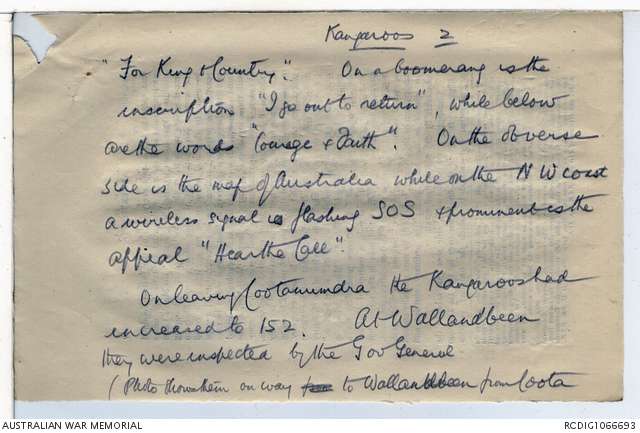 Kangaroos 2
"For King & Country". On a boomerang is the
inscription "I go out to return", while below
are the words "Courage & Faith". On the obverse
side is the map of Australia while on the NW coast
a wireless signal is flashing SOS & prominent is the
appeal "Hear the Call".
On leaving Cootamundra the Kangaroos had
increased to 152. At Wallandbeen
they were inspected by the Gov General
(Photo shows them on way from to Wallandbeen from Coota
AUSTRALIAN WAR MEMORIAL
RCDIG1066693